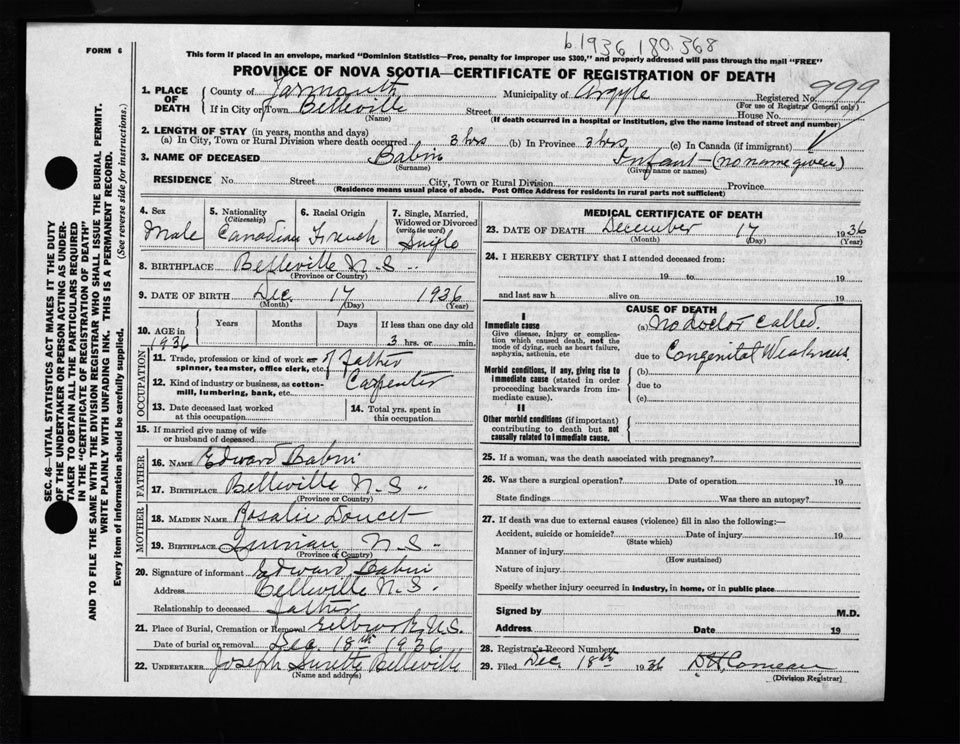 b.1936 180.368
FORM 6
This form if placed in an envelope, marked "Dominion Statistics—Free, penalty for improper use $300," and properly addressed will pass through the mail "FREE"
PROVINCE OF NOVA SCOTIA—CERTIFICATE OF REGISTRATION OF DEATH
1. PLACE OF DEATH
County of Yarmouth Municipality of Argyle Registered No. 999
(For use of Registrar General only)
If in City or Town Belleville Street House No.
(Name) (If death occurred in a hospital or institution, give the name instead of street and number)
2. LENGTH OF STAY (in years, months and days)
(a) In City, Town or Rural Division where death occurred 3 hrs (b) In Province 3 hrs (c) In Canada (if immigrant)
3. NAME OF DECEASED Babin Infant — (no name given)
(Surname) (Given name or names)
RESIDENCE No. Street City, Town or Rural Division Province
(Residence means usual place of abode. Post Office Address for residents in rural parts not sufficient)
4. Sex
Male
5. Nationality
(Citizenship)
Canadian
6. Racial Origin
French
7. Single, Married, Widowed or Divorced
(write the word)
Single
8. BIRTHPLACE Belleville N.S. "
(Province or Country)
9. DATE OF BIRTH Dec. 17 1936
(Month) (Day) (Year)
10. AGE in 1936
Years Months Days If less than one day old
3 hrs. or min.
OCCUPATION
11. Trade, profession or kind of work as spinner, teamster, office clerk, etc. of Father
12. Kind of industry or business, as cotton-mill, lumbering, bank, etc. Carpenter
13. Date deceased last worked at this occupation
14. Total yrs. spent in this occupation
15. If married give name of wife or husband of deceased
FATHER
16. NAME Edward Babin
17. BIRTHPLACE Belleville N.S "
(Province or Country)
MOTHER
18. MAIDEN NAME Rosalie Doucet
19. BIRTHPLACE Quinan N.S-
(Province or Country)
20. Signature of informant Edward Babin
Address Belleville N.S.
Relationship to deceased father
21. Place of Burial, Cremation or Removal N.S.
Date of burial or removal Dec. 18th 1936
22. UNDERTAKER Joseph Surette Belleville
(Name and address)
MEDICAL CERTIFICATE OF DEATH
23. DATE OF DEATH December 17 1936
(Month) (Day) (Year)
24. I HEREBY CERTIFY that I attended deceased from:
19 to 19
and last saw h alive on 19
CAUSE OF DEATH
I
Immediate cause
Give disease, injury or complication which caused death, not the mode of dying, such as heart failure, asphyxia, asthenia, etc
(a) No doctor called.
due to Congenital Weakness
Morbid conditions, if any, giving rise to immediate cause (stated in order proceeding backwards from immediate cause).
(b)
due to
(c)
II
Other morbid conditions (if important) contributing to death but not causally related to immediate cause.
25. If a woman, was the death associated with pregnancy?
26. Was there a surgical operation? Date of operation 19
State findings Was there an autopsy?
27. If death was due to external causes (violence) fill in also the following:—
Accident, suicide or homicide? Date of injury 19
(State which)
Manner of injury
(How sustained)
Nature of injury
Specify whether injury occurred in industry, in home, or in public place
Signed by M.D.
Address Date 19
28. Registrar's Record Number
29. Filed Dec. 18th 1936 D H Comeau
(Division Registrar)
SEC. 46—VITAL STATISTICS ACT MAKES IT THE DUTY
OF THE UNDERTAKER OR PERSON ACTING AS UNDER-
TAKER TO OBTAIN ALL THE PARTICULARS REQUIRED
IN THE "CERTIFICATE OF REGISTRATION OF DEATH"
AND TO FILE THE SAME WITH THE DIVISION REGISTRAR WHO SHALL ISSUE THE BURIAL PERMIT.
WRITE PLAINLY WITH UNFADING INK. THIS IS A PERMANENT RECORD.
Every item of information should be carefully supplied. (See reverse side for instructions.)